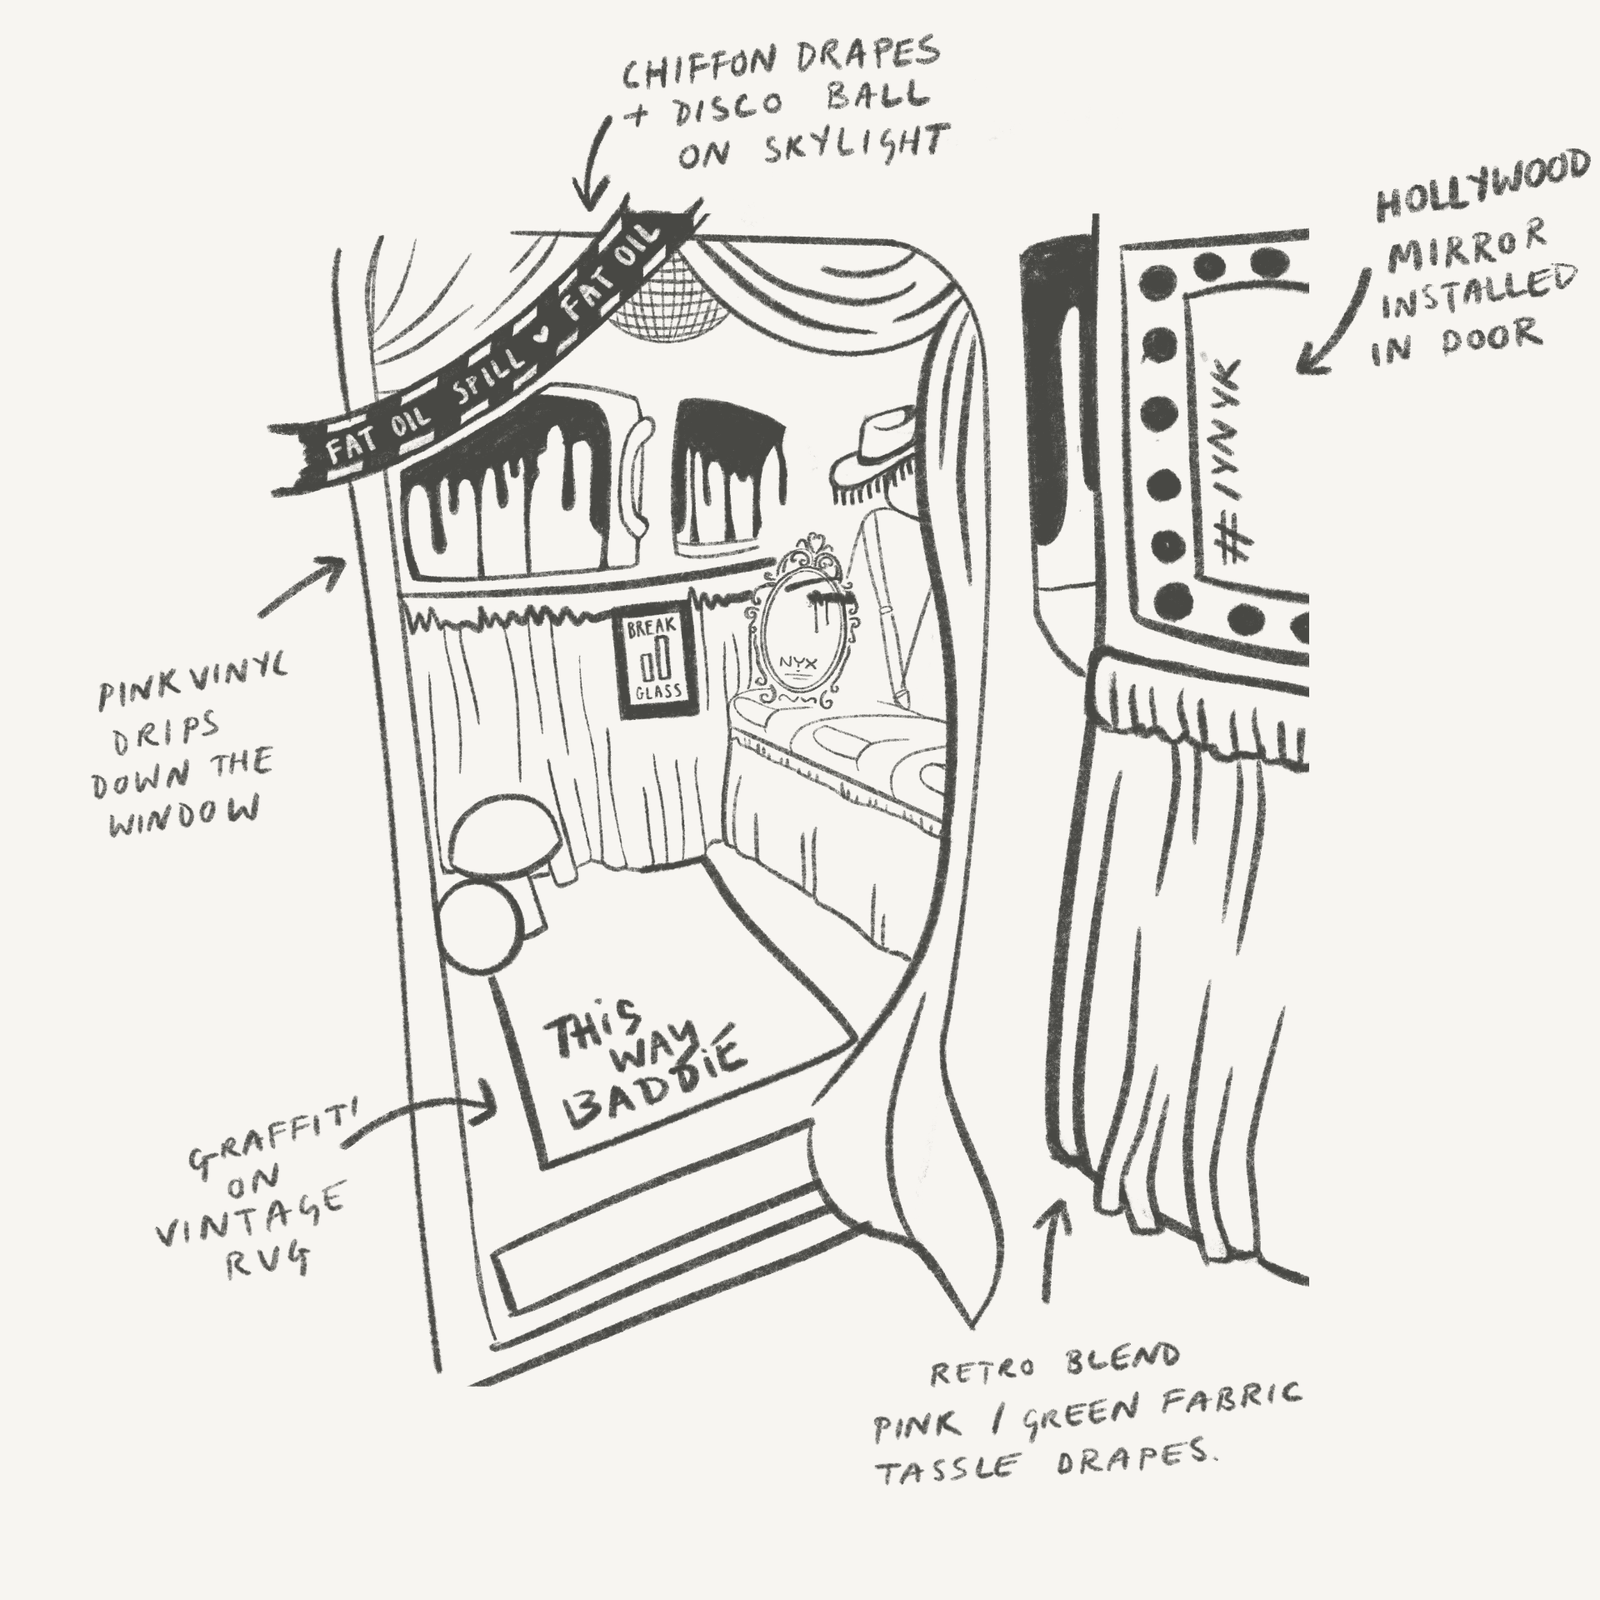 CHIFFON DRAPES
+ DISCO BALL
ON SKYLIGHT
HOLLYWOOD
MIRROR
INSTALLED
IN DOOR
FAT OIL SPILL ♥ FAT OIL
#IYNYK
PINK VINYL
DRIPS
DOWN THE
WINDOW
BREAK
GLASS
NYX
THIS
WAY
BADDIE
GRAFFITI
ON
VINTAGE
RUG
RETRO BLEND
PINK / GREEN FABRIC
TASSLE DRAPES.